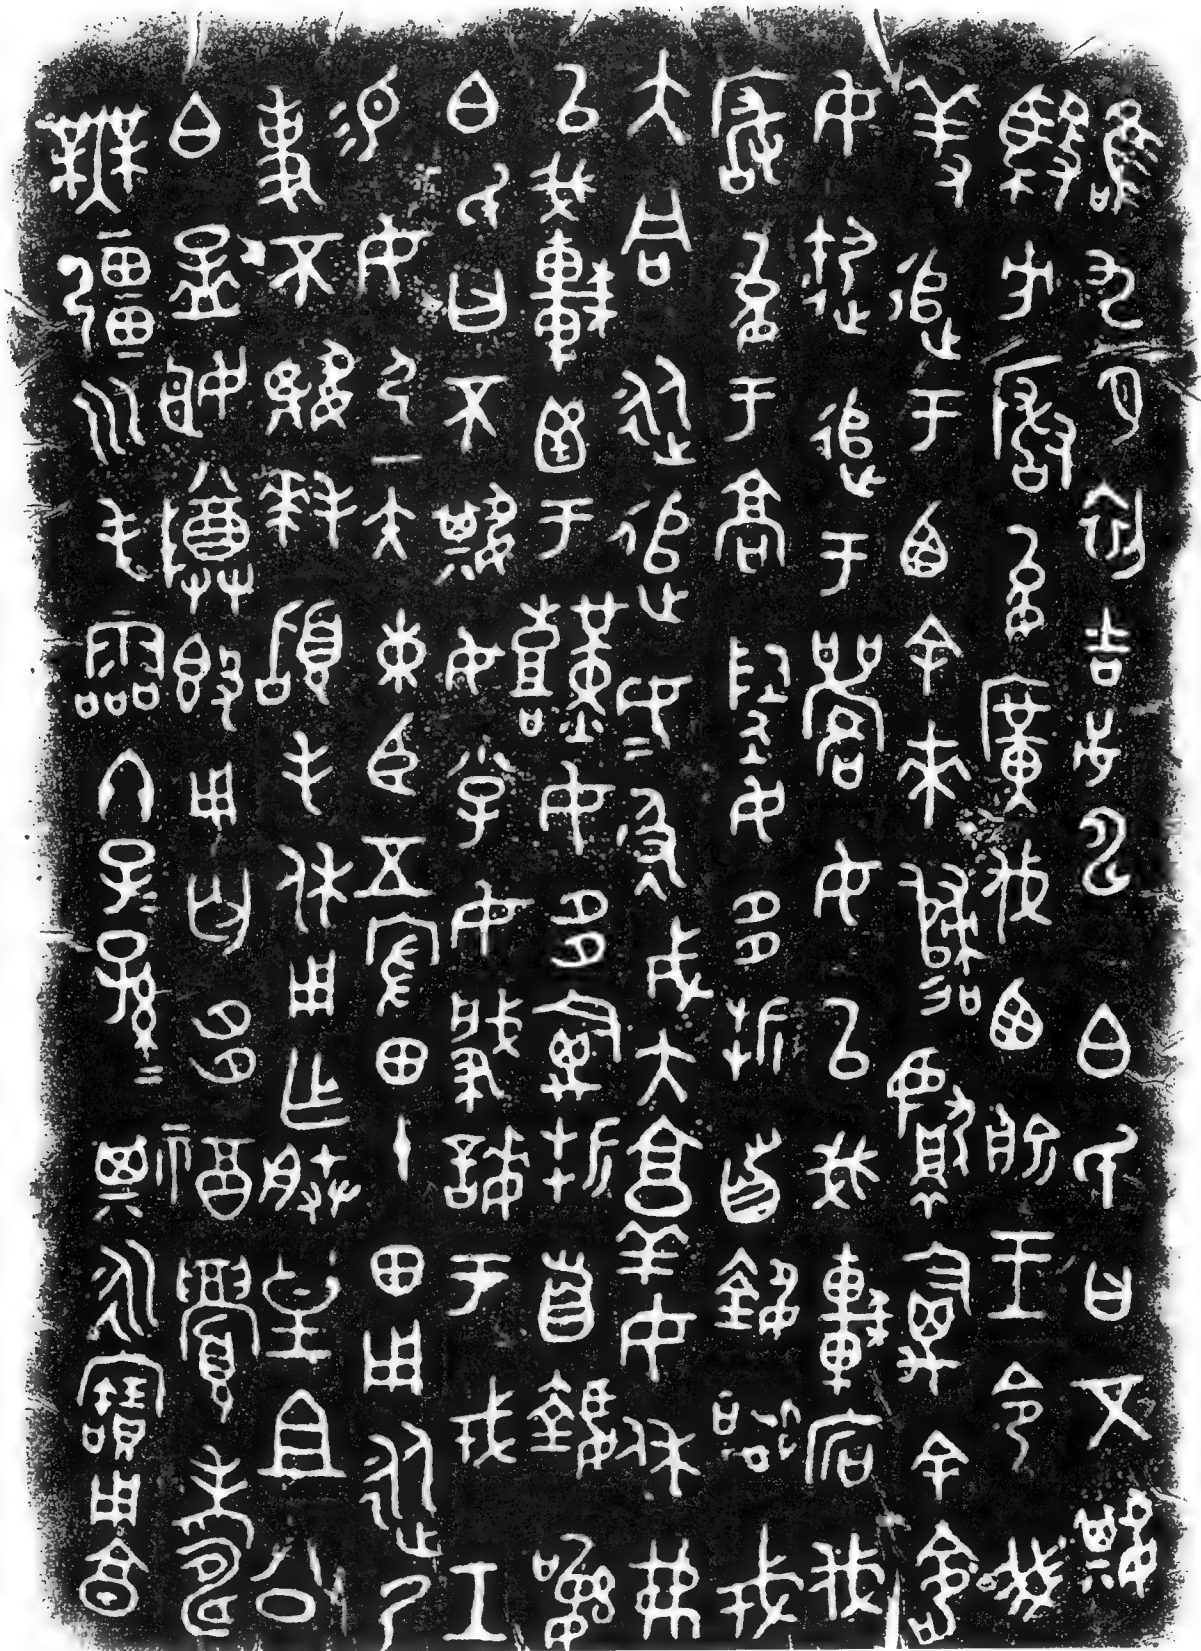 唯九月初吉戊申白氏曰不𡢁
馭方玁允廣伐西俞王令我
羞追于西余來歸獻禽余命
女御追于𥐫女以我車宕伐
玁允于高陶女多折首執訊戎
大同從追女女彶戎大敦搏女休弗
以我車圅于艱女多禽折首執訊
白氏曰不𡢁女小子女肇誨于戎工
易女弓一矢束臣五家田十田用從乃
事不𡢁拜稽手休用乍朕皇且公
白孟姬尊簋用匄多福眉壽
無疆永屯霝冬子子孫孫其永寶用享